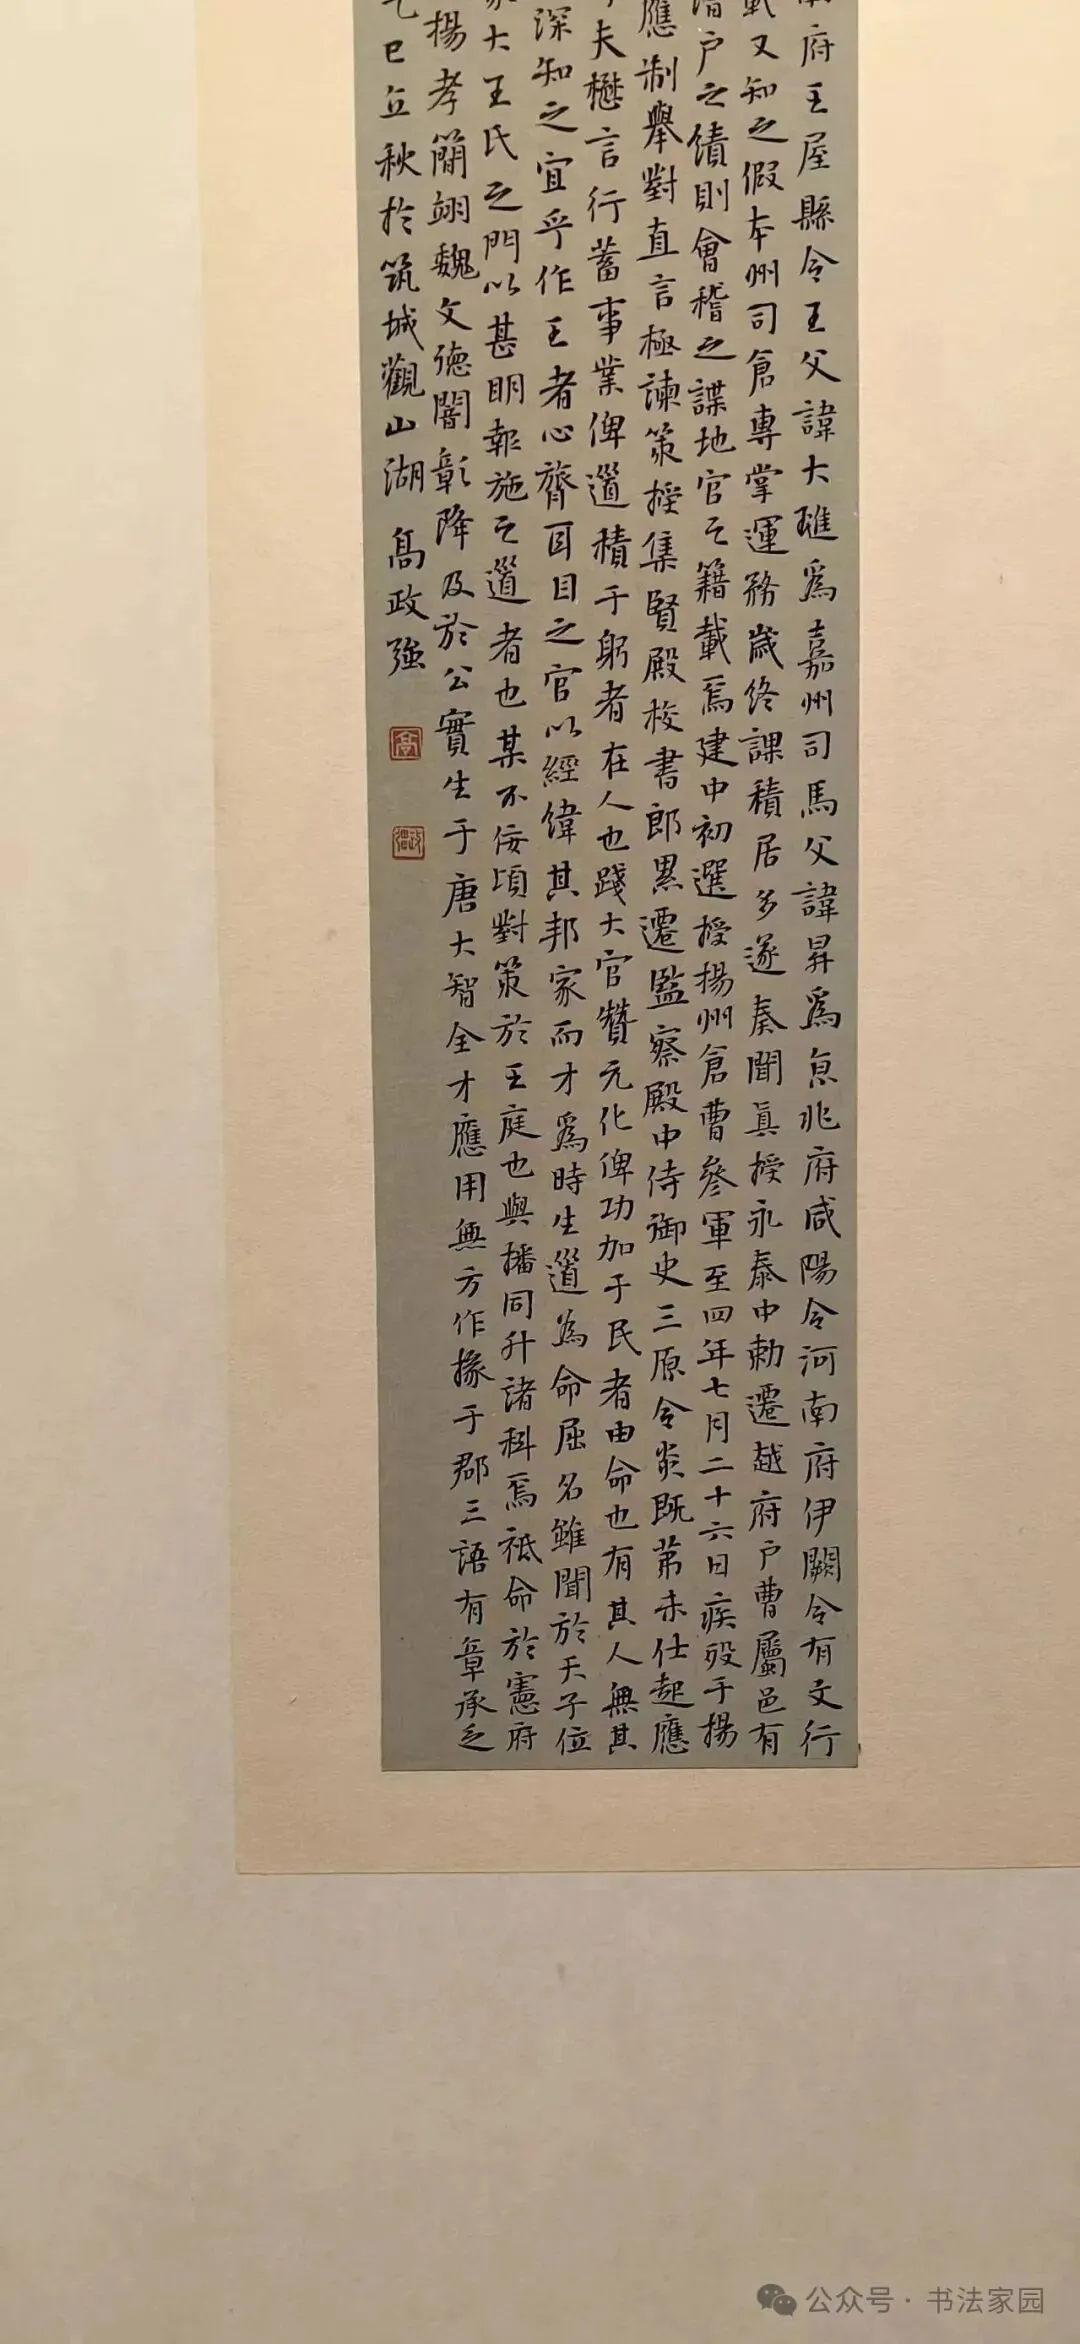 府王屋縣令王父諱大璡爲嘉州司馬父諱昇爲京兆府咸陽令河南府伊闕令有文行
又知之假本州司倉專掌運務歲終課積居多遂奏聞真授永泰中勅遷越府戶曹屬邑有
戶之績則會稽之諜地官之籍載焉建中初選授揚州倉曹參軍至四年七月二十六日疾歿于揚
應制舉對直言極諫策授集賢殿校書郎累遷監察殿中侍御史三原令炎既第未仕起應
夫懋言行蓄事業俾道積于躬者在人也踐大官贊元化俾功加于民者由命也有其人無其
深知之宜乎作王者心膂耳目之官以經緯其邦家而才爲時生道為命屈名雖聞於天子位
大王氏之門以甚明報施之道者也某不佞頃對策於王庭也與播同升諸科焉祗命於憲府
揚孝簡翊魏文德闇彰降及於公實生于唐大智全才應用無方作掾于郡三語有章承乏
乙巳立秋於筑城觀山湖 高政強
高
政強
公众号·书法家园